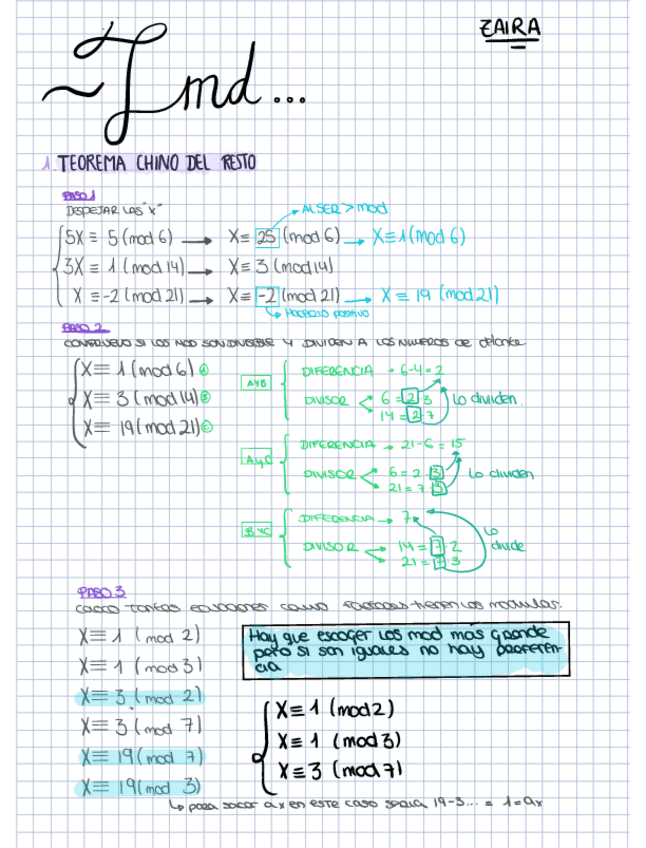 ZAIRA
~Tmd...
1. TEOREMA CHINO DEL RESTO
PASO 1
DESPEJAR LAS "X"
AL SER > mod
5X ≡ 5 (mod 6) → X ≡ 25 (mod 6) → X ≡ 1 (mod 6)
3X ≡ 1 (mod 14) → X ≡ 3 (mod 14)
X ≡ -2 (mod 21) → X ≡ -2 (mod 21) → X ≡ 19 (mod 21)
↳ HACERLO POSITIVO
PASO 2
COMPRUEBO SI LOS MOD SON DIVISIBLE Y DIVIDEN A LOS NUMEROS DE delante
X ≡ 1 (mod 6) A
X ≡ 3 (mod 14) B
X ≡ 19 (mod 21) C
A Y B
DIFERENCIA → 6-4=2
DIVISOR
6 = 2·3
14 = 2·7
Lo dividen.
A y C
DIFERENCIA → 21-6=15
DIVISOR
6 = 2·3
21 = 7·3
Lo dividen
B Y C
DIFERENCIA → 7
DIVISOR
14 = 7·2
21 = 7·3
Lo divide
PASO 3
tantas ecuaciones como factores tienen los modulos.
X ≡ 1 (mod 2)
X ≡ 1 (mod 3)
X ≡ 3 (mod 2)
X ≡ 3 (mod 7)
X ≡ 19 (mod 7)
X ≡ 19 (mod 3)
Hay que escoger los mod más grande
pero si son iguales no hay preferen-
cia
X ≡ 1 (mod 2)
X ≡ 1 (mod 3)
X ≡ 3 (mod 7)
↳ para sacar ax en este caso seria 19-3... = 1 = ax